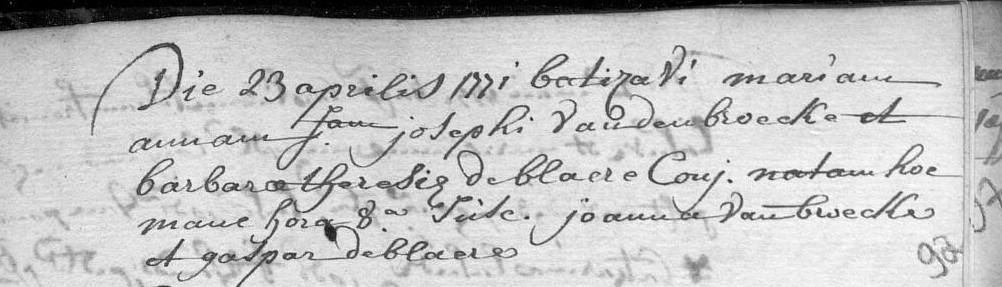 Die 23 aprilis 1771 batizavi mariam
annam f. josephi Vandenbroecke et
barbaræ theresiæ deblaere Conj. natam hoc
mane hora 8.a Susc. joanna Vanbroecke
et gaspar deblaere
92